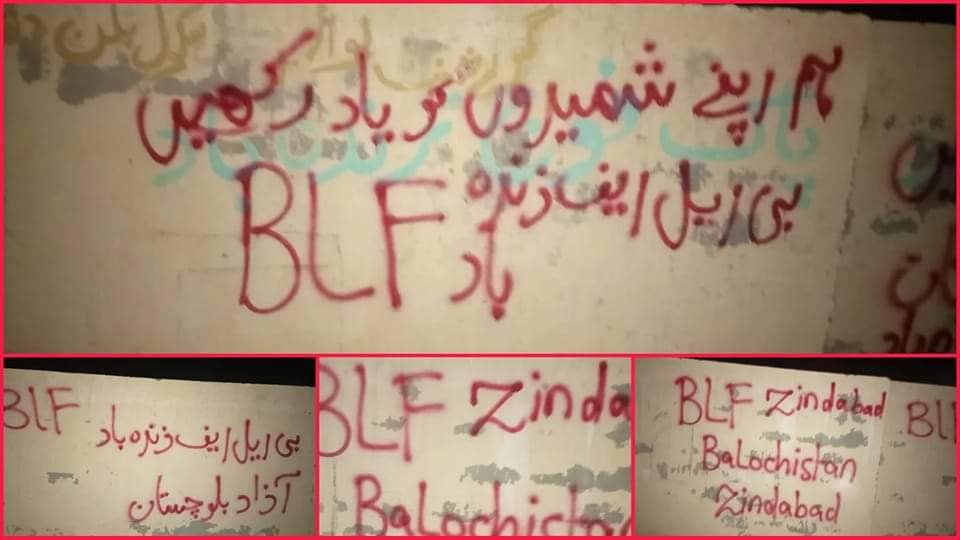 ہم اپنے شہیدوں کو یاد رکھیں
بی ایل ایف زندہ
باد BLF
BLF بی ایل ایف زندہ باد
آزاد بلوچستان
BLF Zinda
Balochistan
BLF Zindabad
Balochistan
Zindabad
BL